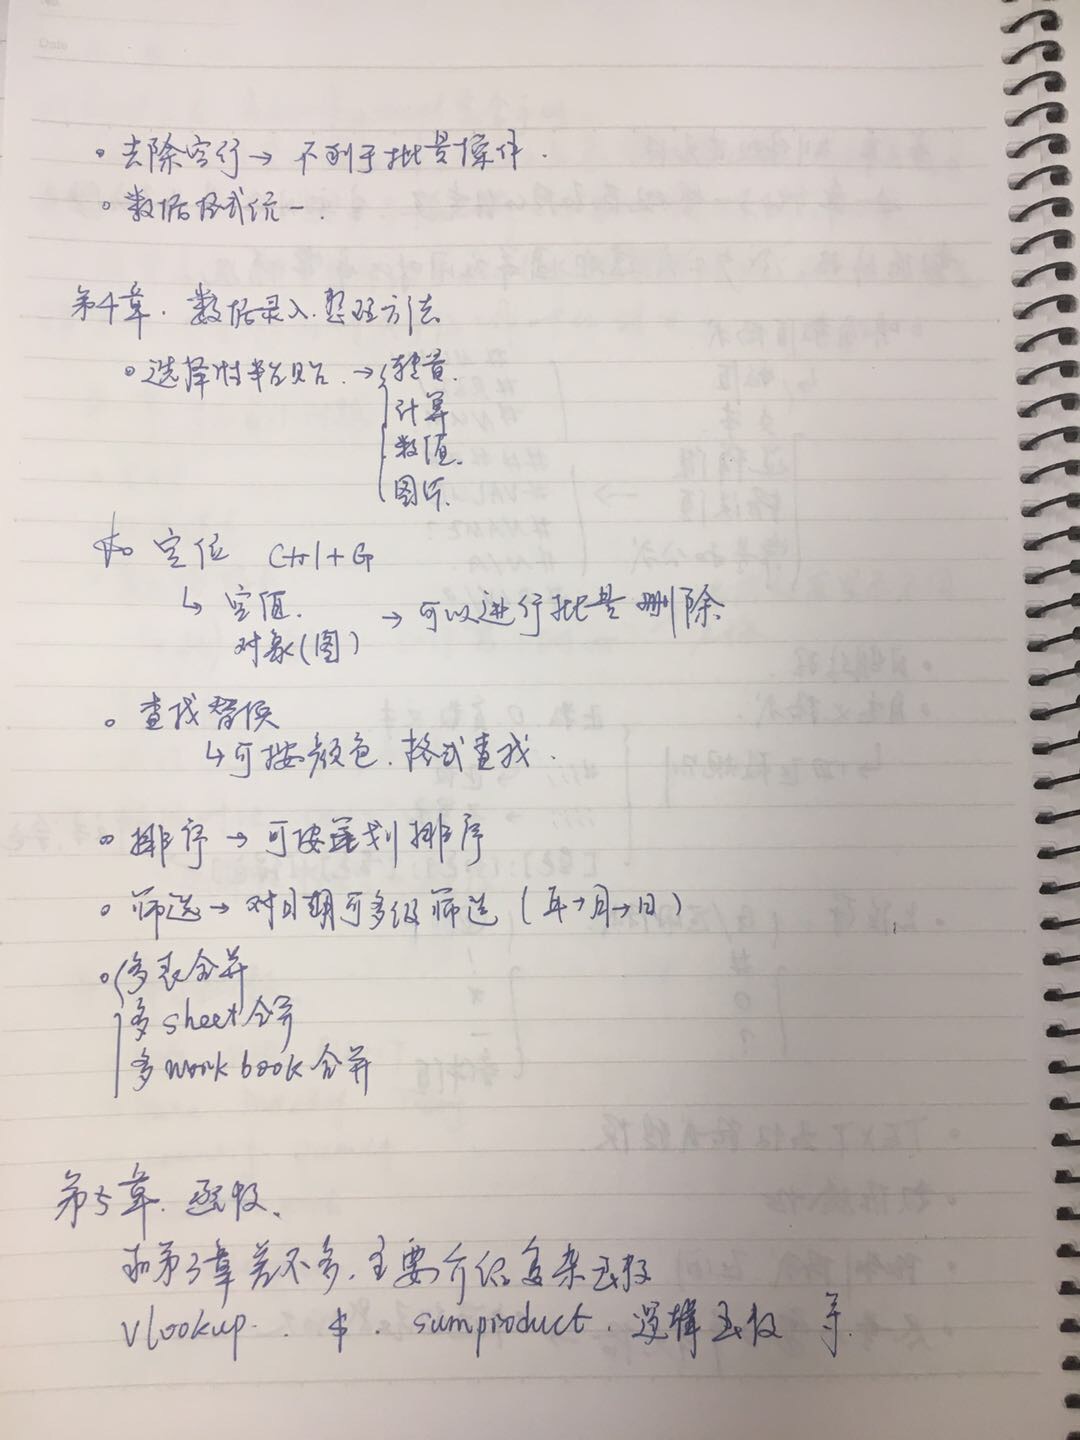 Date
。去除空行→ 不利于批量操作.
。数据格式统一.
第4章. 数据录入.整理方法
。选择性粘贴.→ 转置.
计算
数值.
图片.
定位 Ctrl+G
↳ 空值. → 可以进行批量删除
对象(图)
。查找替换
↳可按颜色.格式查找.
。排序→可按笔划排序
。筛选→对日期可多级筛选(年→月→日)
。多表合并
多sheet合并
多workbook合并
第5章. 函数、
和第3章差不多.主要介绍复杂函数
vlookup. . $ . sumproduct. 逻辑函数 等.